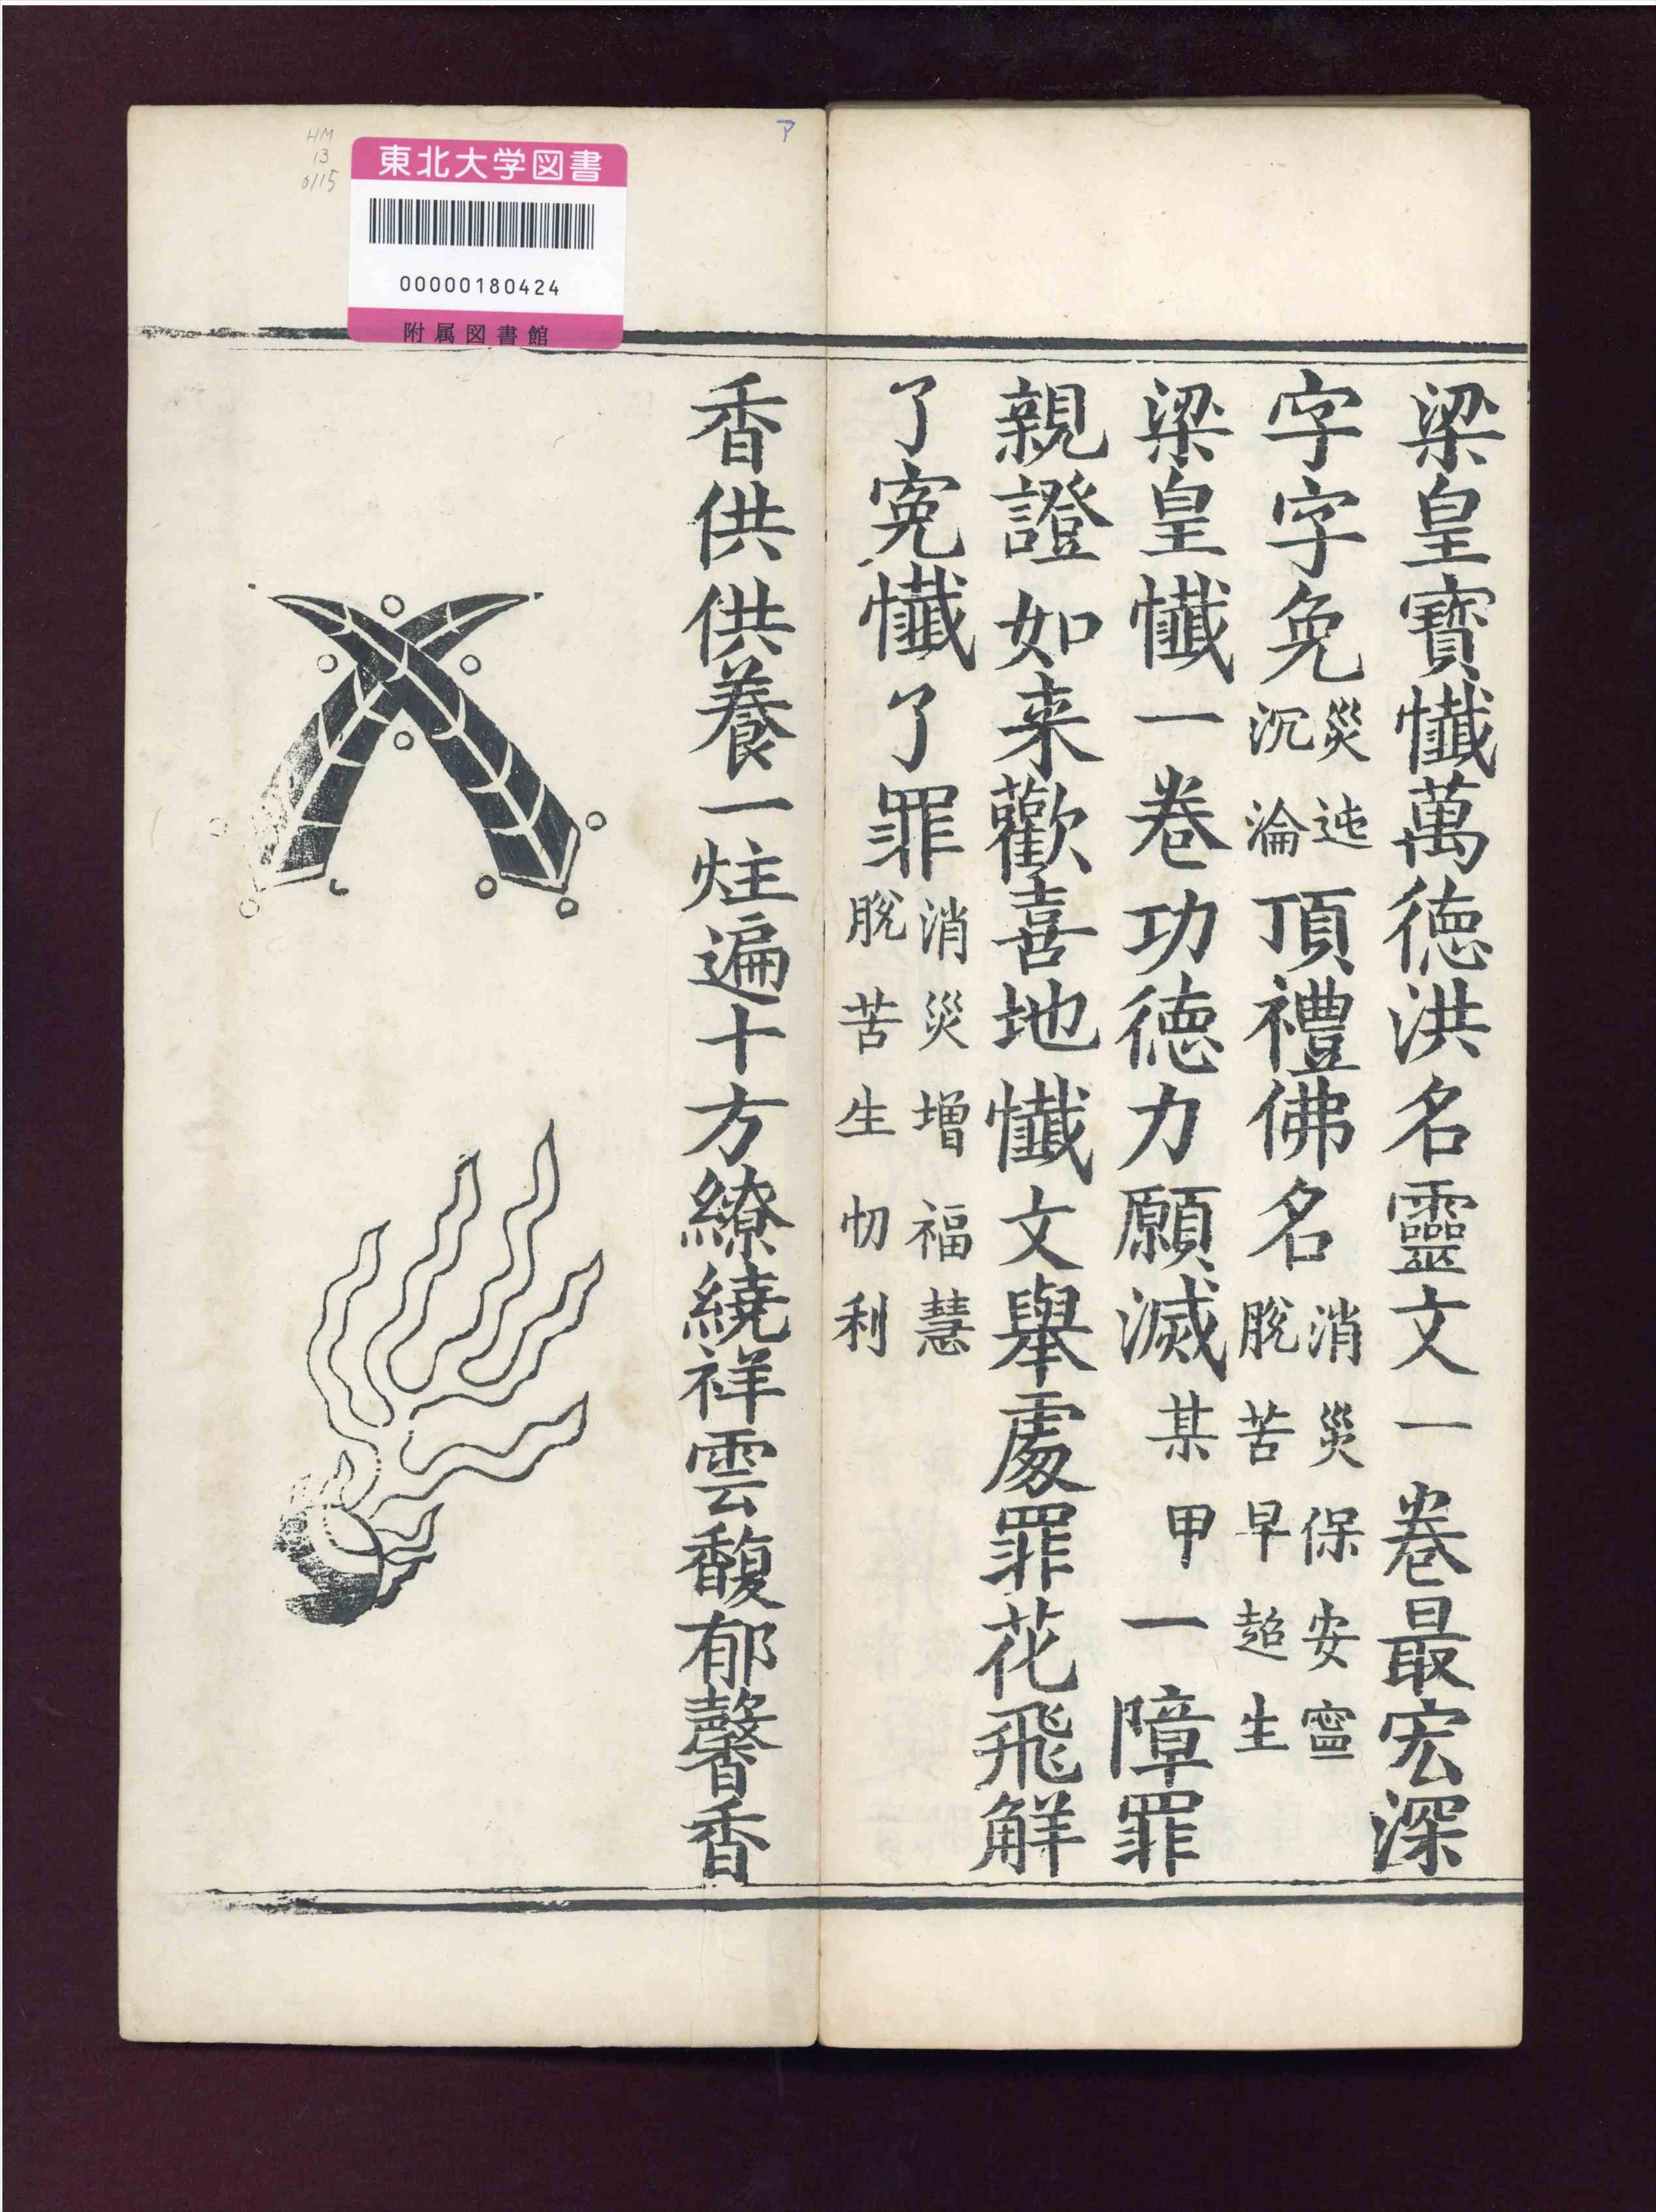 梁皇寳懴萬徳洪名靈文一卷最宏深
字字免災迍沉淪頂禮佛名消災保安寧脫苦早超生
梁皇懴一卷功徳力願滅某甲一障罪
親證如来歡喜地懴文舉處罪花飛解
了寃懴了罪消災增福慧脫苦生忉利
香供供養一炷遍十方繚繞祥雲馥郁馨香
東北大学図書
00000180424
附属図書館
HM
13
0115
ア